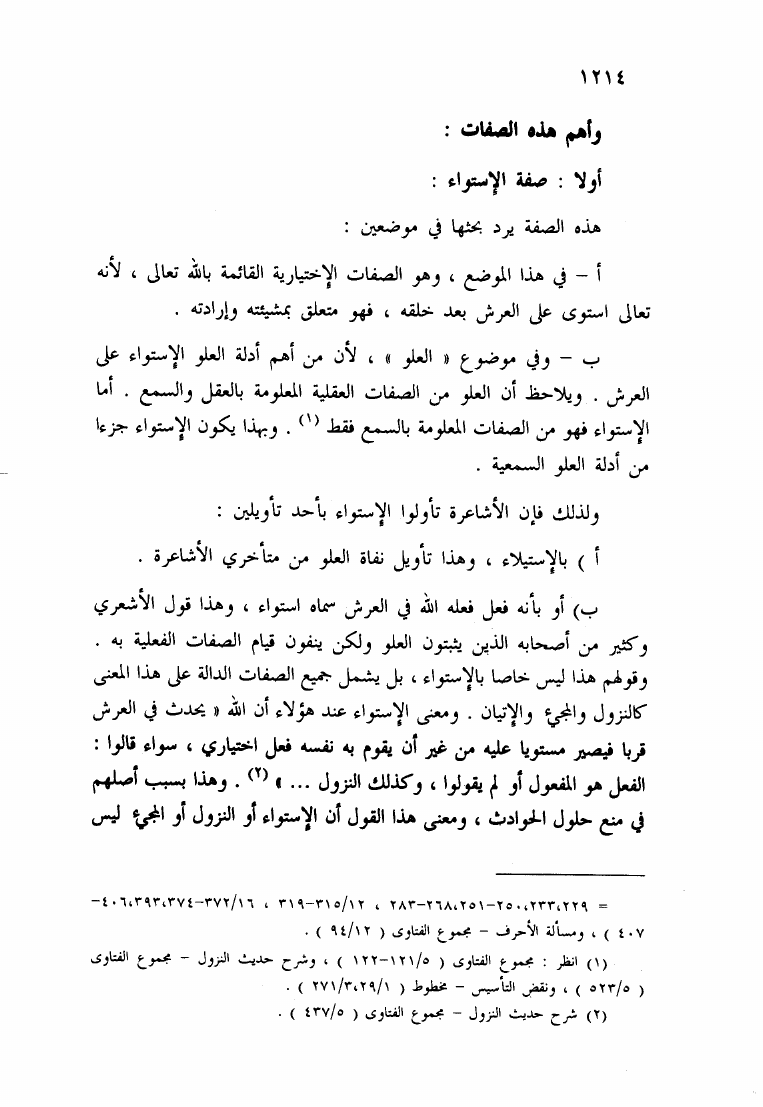 ١٢١٤
وأهم هذه الصفات :
أولا : صفة الإستواء :
هذه الصفة يرد بحثها في موضعين :
أ – في هذا الموضع ، وهو الصفات الإختيارية القائمة بالله تعالى ، لأنه
تعالى استوى على العرش بعد خلقه ، فهو متعلق بمشيئته وإرادته .
ب – وفي موضوع « العلو » ، لأن من أهم أدلة العلو الإستواء على
العرش . ويلاحظ أن العلو من الصفات العقلية المعلومة بالعقل والسمع . أما
الإستواء فهو من الصفات المعلومة بالسمع فقط (١) . وبهذا يكون الإستواء جزءا
من أدلة العلو السمعية .
ولذلك فإن الأشاعرة تأولوا الإستواء بأحد تأويلين :
أ ) بالإستيلاء ، وهذا تأويل نفاة العلو من متأخري الأشاعرة .
ب) أو بأنه فعل فعله الله في العرش سماه استواء ، وهذا قول الأشعري
وكثير من أصحابه الذين يثبتون العلو ولكن ينفون قيام الصفات الفعلية به .
وقولهم هذا ليس خاصا بالإستواء ، بل يشمل جميع الصفات الدالة على هذا المعنى
كالنزول والمجيء والإتيان . ومعنى الإستواء عند هؤلاء أن الله « يحدث في العرش
قربا فيصير مستويا عليه من غير أن يقوم به نفسه فعل اختياري ، سواء قالوا :
الفعل هو المفعول أو لم يقولوا ، وكذلك النزول ... » (٢) . وهذا بسبب أصلهم
في منع حلول الحوادث ، ومعنى هذا القول أن الإستواء أو النزول أو المجيء ليس
= ٢٢٩،٢٣٣،٢٥٠–٢٥١،٢٦٨–٢٨٣ ، ٣١٥/١٢–٣١٩ ، ٣٧٢/١٦–٣٧٤،٣٩٣،٤٠٦–
٤٠٧ ) ، ومسألة الأحرف – مجموع الفتاوى ( ٩٤/١٢ ) .
(١) انظر : مجموع الفتاوى ( ١٢١/٥–١٢٢ ) ، وشرح حديث النزول – مجموع الفتاوى
( ٥٢٣/٥ ) ، ونقض التأسيس – مخطوط ( ٢٧١/٣،٢٩/١ ) .
(٢) شرح حديث النزول – مجموع الفتاوى ( ٤٣٧/٥ ) .